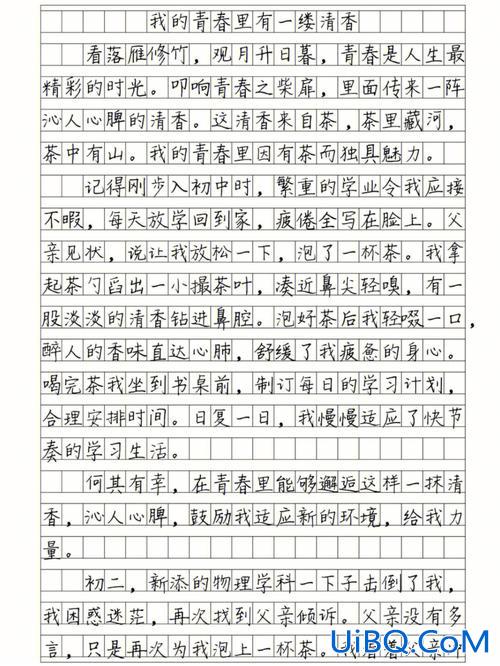 我的青春里有一缕清香
看落雁修竹，观月升日暮，青春是人生最
精彩的时光。叩响青春之柴扉，里面传来一阵
沁人心脾的清香。这清香来自茶，茶里藏河，
茶中有山。我的青春里因有茶而独具魅力。
记得刚步入初中时，繁重的学业令我应接
不暇，每天放学回到家，疲倦全写在脸上。父
亲见状，说让我放松一下，泡了一杯茶。我拿
起茶勺舀出一小撮茶叶，凑近鼻尖轻嗅，有一
股淡淡的清香钻进鼻腔。泡好茶后我轻啜一口，
醉人的香味直达心肺，舒缓了我疲惫的身心。
喝完茶我坐到书桌前，制订每日的学习计划，
合理安排时间。日复一日，我慢慢适应了快节
奏的学习生活。
何其有幸，在青春里能够邂逅这样一抹清
香，沁人心脾，鼓励我适应新的环境，给我力
量。
初二，新添的物理学科一下子击倒了我，
我困惑迷茫，再次找到父亲倾诉。父亲没有多
言，只是再次为我泡上一杯茶。我看着父亲
UiBQ.CoM